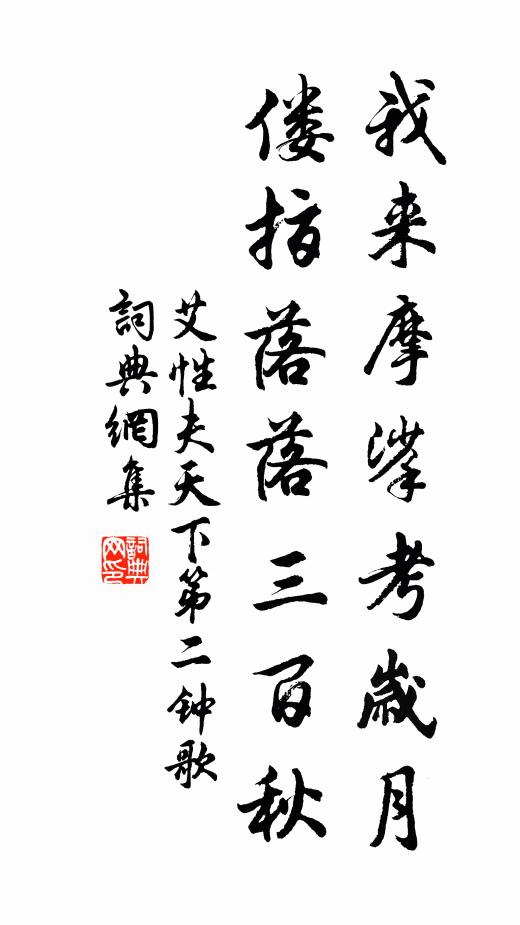 我来摩挲考歲月
偻指落落三百秋
艾性夫天下第二钟歌
詞典網集
詞典网印